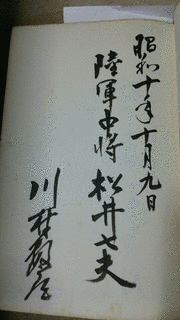 昭和十年十月九日
陸軍中将 松井七夫
川村